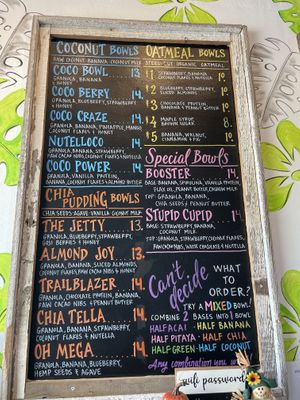 COCONUT BOWLS
RAW COCONUT, BANANA, COCONUT MILK
COCO BOWL 13
GRANOLA, BANANA,
+ HONEY
COCO BERRY 14
GRANOLA, BLUEBERRY, STRAWBERRY
+ HONEY
COCO CRAZE 14
GRANOLA, BANANA, PINEAPPLE, MANGO,
COCONUT FLAKES + HONEY
NUTELLOCO 14
GRANOLA, BANANA, STRAWBERRY,
RAW CACAO NIBS, COCONUT FLAKES + NUTELLA
COCO POWER 14
GRANOLA, VANILLA PROTEIN,
BANANA, COCONUT FLAKES + ALMOND BUTTER
CHIA
PUDDING BOWLS
CHIA SEEDS, AGAVE, VANILLA, COCONUT MILK
THE JETTY 13.
GRANOLA, BLUEBERRY, STRAWBERRY,
GOJI BERRIES + HONEY
ALMOND JOY 13.
GRANOLA, BANANA, SLICED ALMONDS,
COCONUT FLAKES, RAW CACAO NIBS + HONEY
TRAILBLAZER 14.
GRANOLA, CHOCOLATE PROTEIN, BANANA,
RAW CACAO NIBS + PEANUT BUTTER
CHIA TELLA 14.
GRANOLA, BANANA, STRAWBERRY,
COCONUT FLAKES + NUTELLA
OH MEGA 14.
GRANOLA, BANANA, BLUEBERRY,
HEMP SEEDS + AGAVE
OATMEAL BOWLS
STEEL-CUT ORGANIC OATMEAL
#1 STRAWBERRY, BANANA,
#2 BLUEBERRY, STRAWBERRY,
SLICED ALMONDS
#3 CHOCOLATE PROTEIN,
BANANA + PEANUT BUTTER
#4 MAPLE SYRUP
BROWN SUGAR
#5 BANANA, WALNUT,
CINNAMON +
Special Bowls
BOOSTER 14.
BASE: BANANA, SPIRULINA, VANILLA PROTEIN,
FLAX OIL, PEANUT BUTTER, COCONUT MILK
TOP: GRANOLA, BANANA,
CHIA SEEDS + PEANUT BUTTER
STUPID CUPID 14.
BASE: STRAWBERRY, BANANA,
COCONUT MILK
TOP: GRANOLA, STRAWBERRY, COCONUT FLAKES,
RAW CACAO NIBS, WHITE CHOCOLATE + NUTELLA
Can't
decide
WHAT
TO
ORDER?
TRY A MIXED BOWL!
COMBINE 2 BASES INTO 1 BOWL
HALF ACAI - HALF BANANA
HALF PITAYA - HALF CHIA
HALF GREEN - HALF COCONUT
Any combination you
wifi password